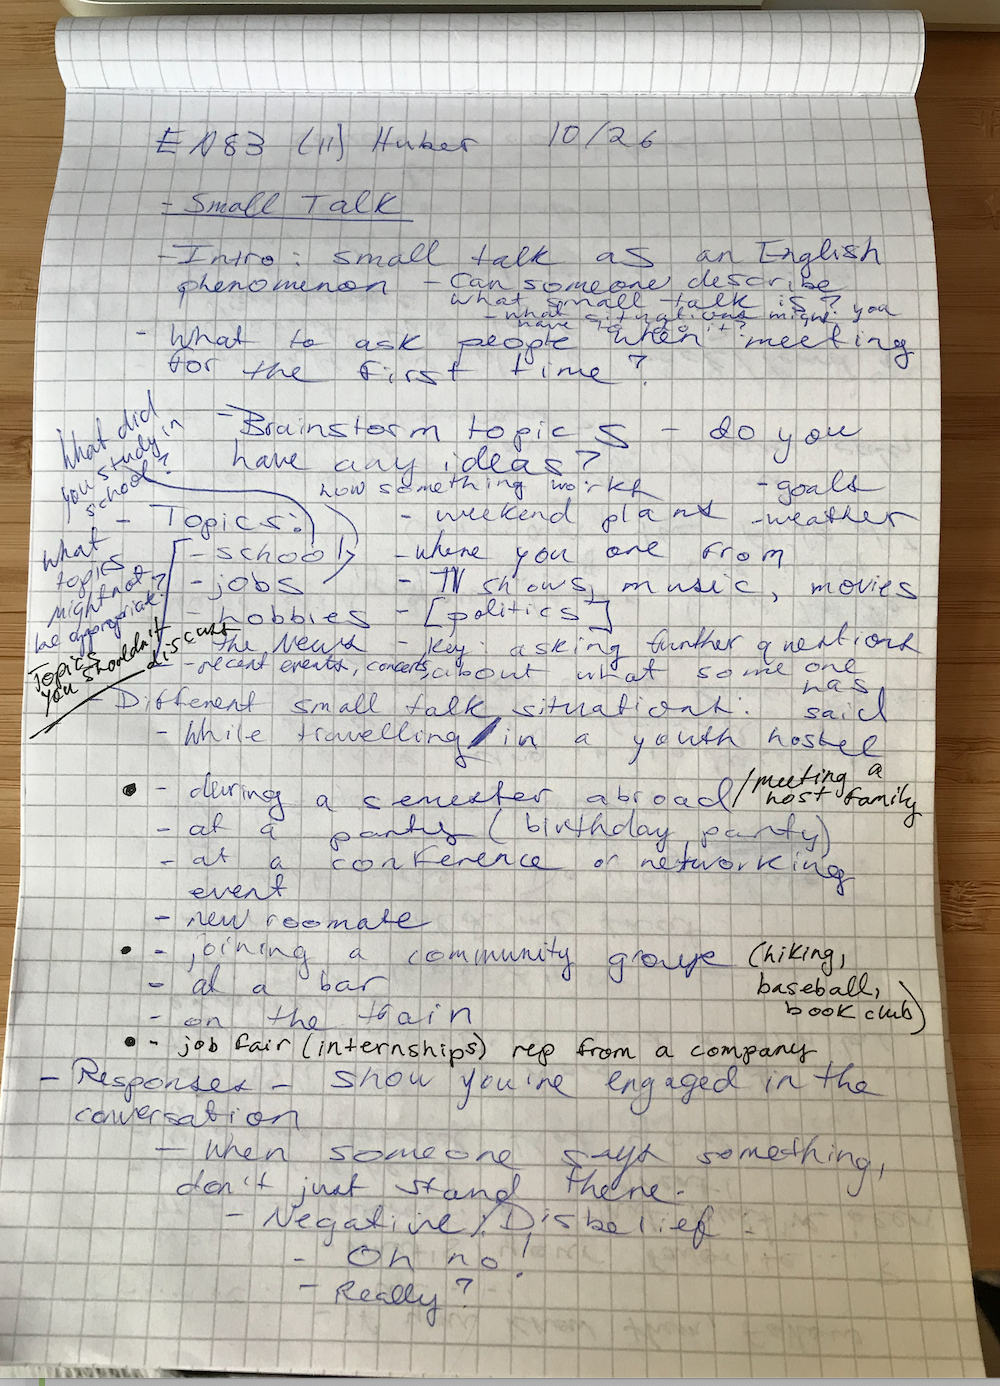 EN83 (11) Huber 10/26
- Small Talk
- Intro: small talk as an English
phenomenon - Can someone describe
what small talk is?
- what situations might you
have to do it?
- What to ask people when meeting
for the first time?
- Brainstorm topics - do you
have any ideas?
What did
you study in
school?
how something works
- goals
- Topics:
- weekend plans
- weather
- school
- where you are from
- jobs
- TV shows, music, movies
- hobbies
- [politics]
- the News
- key: asking further questions
about what someone
has
said
- recent events, concerts,
what
topics
might not
be appropriate?
Topics
you shouldn't
discuss
- Different small talk situations:
- While travelling/in a youth hostel
• - during a semester abroad/meeting a
host family
- at a party (birthday party)
- at a conference or networking
event
- new roomate
• - joining a community group (hiking,
baseball,
book club)
- at a bar
- on the train
• - job fair (internships) rep from a company
- Responses - show you're engaged in the
conversation
- when someone says something,
don't just stand there.
- Negative/Disbelief:
- Oh no!
- Really?